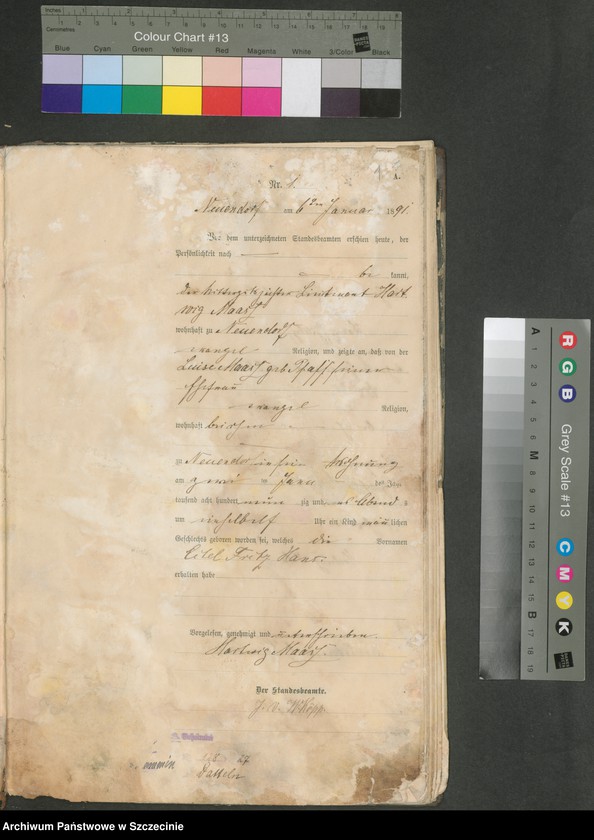 Inches
Centimetres
Colour Chart #13
Blue Cyan Green Yellow Red Magenta White 3/Color Black
A.
Nr. 1.
Neuendorf am 6ten Januar 1891.
Vor dem unterzeichneten Standesbeamten erschien heute, der
Persönlichkeit nach
be kannt,
der Rittergutspächter Lieutenant Hart
wig Maaß
wohnhaft zu Neuendorf
evangel Religion, und zeigte an, daß von der
Luise Maaß geb. seiner
Ehefrau
evangel Religion,
wohnhaft bei ihm
zu Neuendorf in sein Wohnung
am zwei Janu des Jahres
tausend acht hundert neun zig und Abend s
um elf Uhr ein Kind männlichen
Geschlechts geboren worden sei, welches die Vornamen
Eitel Fritz Hans.
erhalten habe
Vorgelesen, genehmigt und unterschrieben
Hartwig Maaß.
Der Standesbeamte.
Grey Scale #13
R G B C M Y K
A 1 2 3 4 5 6 M 8 9 10 11 12 13 14 15 B 17 18 19
Archiwum Państwowe w Szczecinie